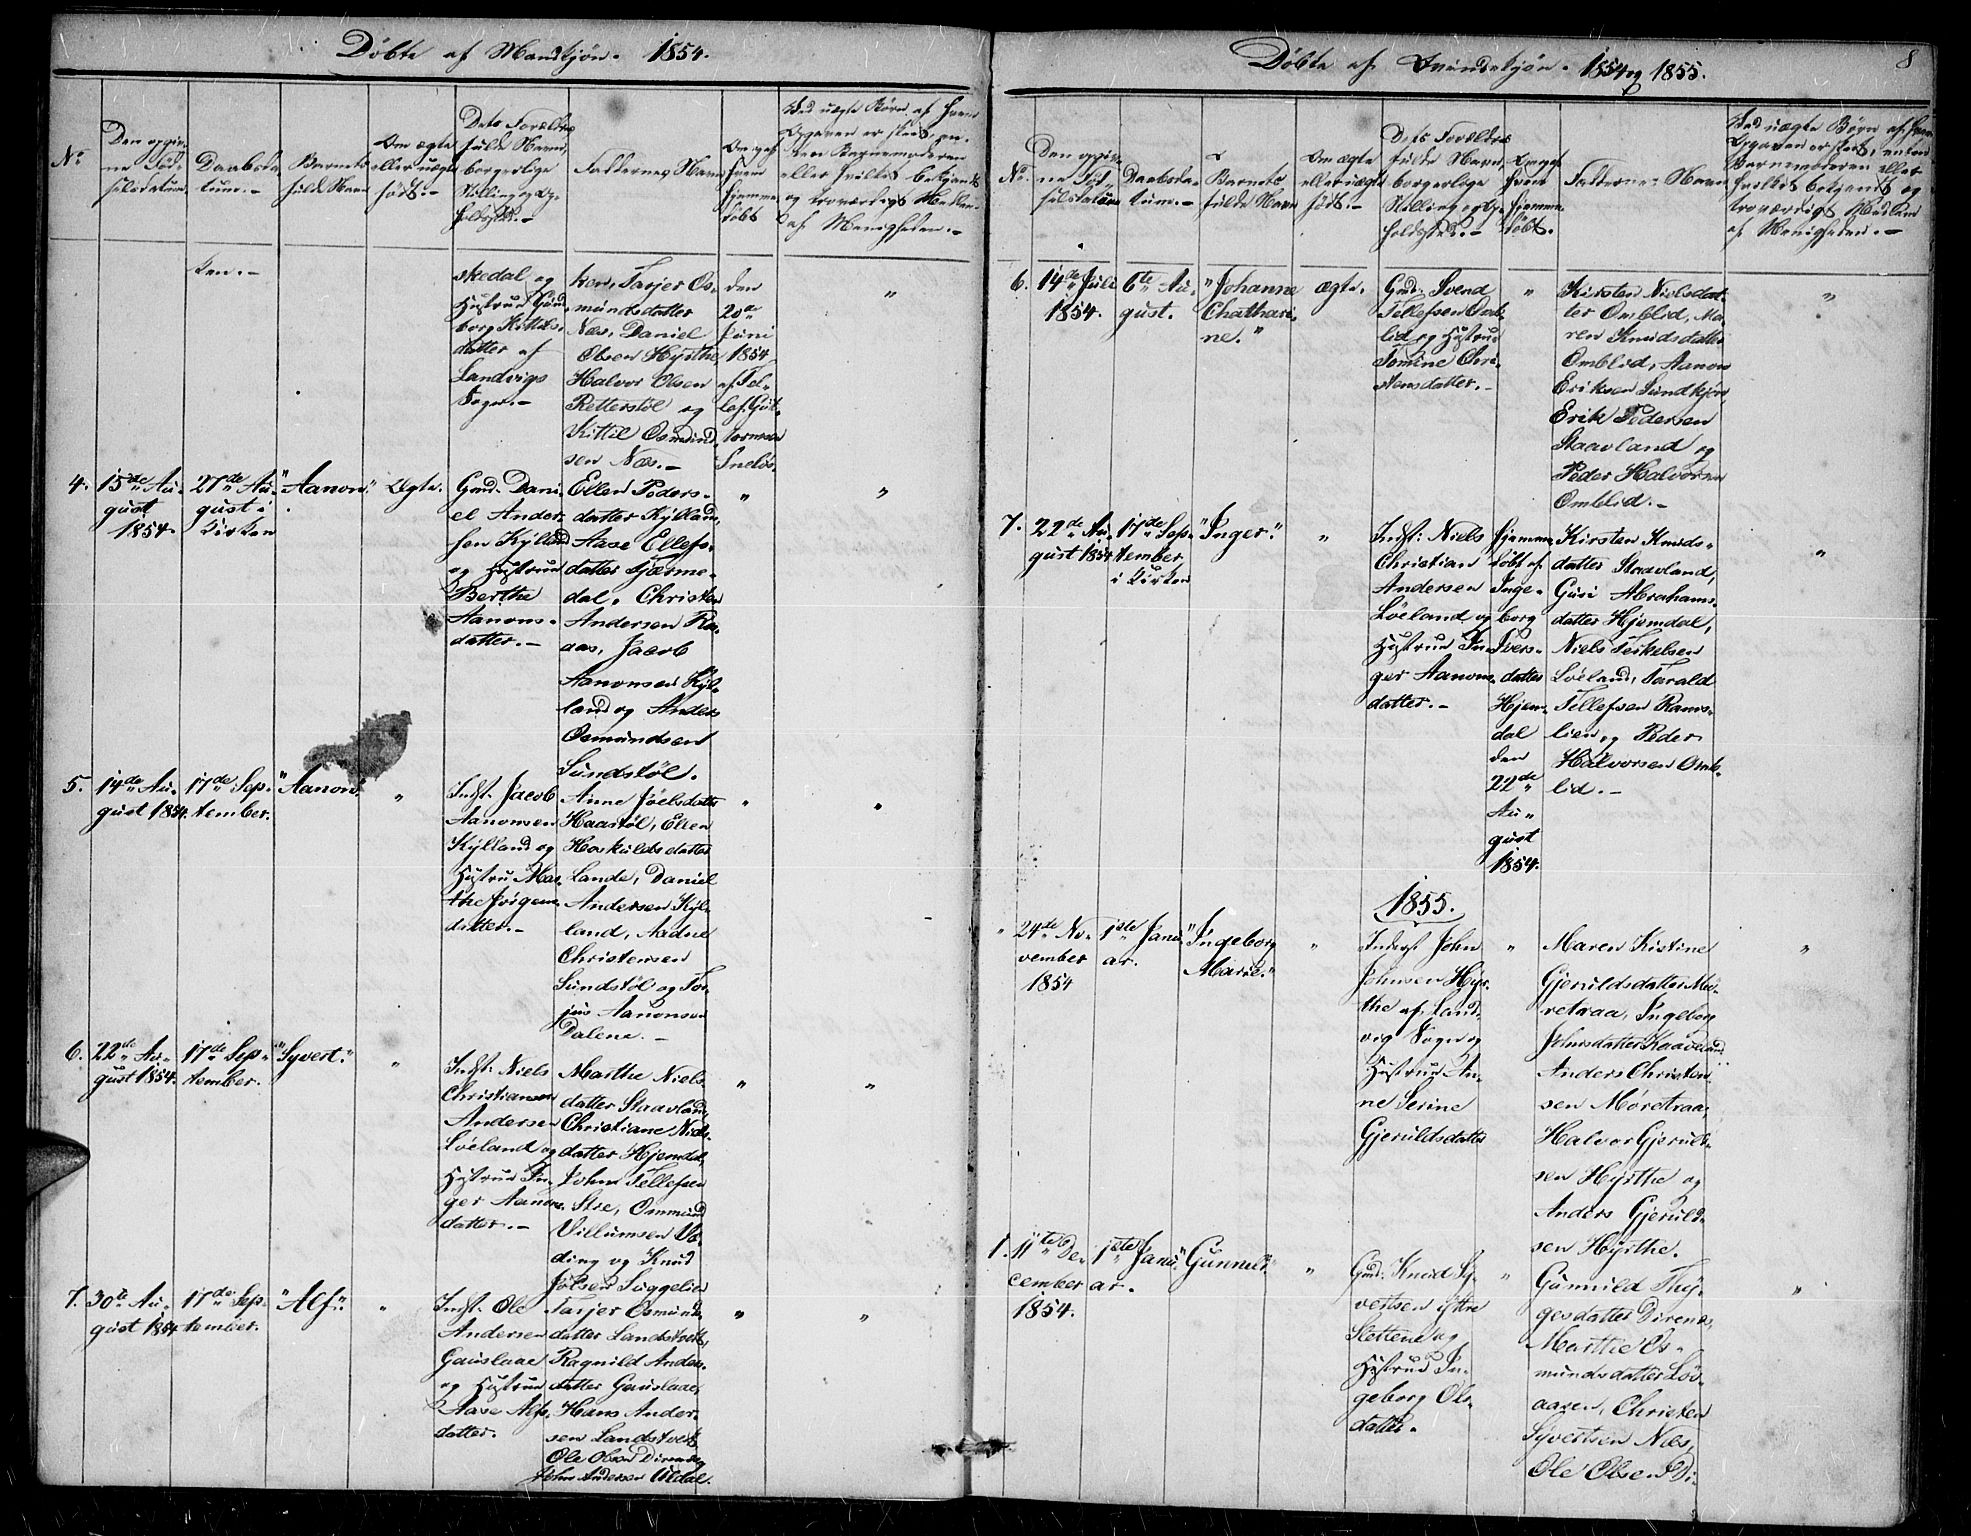 Døbte af Mandkjøn. 1854.
No
Den opgiv-
ne Fød-
selsdatum.
Daabsda-
tum.-
Barnets
fulde Navn
Om ægte
eller uægte
født.-
Dets Forældres
fulde Navn,
borgerlige
Stilling og Op-
holdssted.-
Faddernes Navn
Om og af
hvem
hjemme-
døbt
Ved uægte Børn af hvem
Opgaven er skeet, en-
ten Barnemoderen
eller hvilket bekjendt
og troværdigt Medlem
af Menigheden.-
ken.-
skedal og
Hustrue Gun-
borg Kittils-
datter af
Landvigs
Sogn.-
ken, Tarjer Os-
mundsdatter
Næs, Daniel
Olsen Hyrthe,
Halvor Olsen
Retterstöl og
Kittil Osmund-
sen Næs.-
den
20de
Juni
1854
af Tel-
lef Gut-
tormsen
"
4.
15de Au-
gust
1854.
27de Au-
gust i
Kirken
"Aanon."
Ægte.
Gmd. Dani-
el Ander-
sen Kylland
og Hustrue
Berthe
Aanons-
datter.-
Ellen Peders-
datter Kylland,
Aase Ellefs-
datter Hjærme-
dal, Christen
Andersen Ra-
aas, Jacob
Aanonsen Kyl-
land og Anders
Osmundsen
Sundstöl.
"
"
5.
14de Au-
gust 1854.
17de Sep-
tember.
"Aanon"
"
Indst. Jacob
Aanonsen
Kylland og
Hustru Mar-
the Jörgens-
datter.-
Anne Joelsdatter
Haastöl, Ellen
Hoskuldsdatter
Lande, Daniel
Andersen Kyl-
land, Aadne
Christensen
Sundstöl og Tor-
jus Aanonsen
Dalene.-
"
"
6.
22de Au-
gust 1854.
17de Sep-
tember.
"Syvert."
"
Indst. Niels
Christiansen
Andersen
Löeland og
Hustrue In-
ger Aanons-
datter.-
Marthe Niels-
datter Staavland,
Christiane Niels-
datter Hjemdal,
John Tellefsen
Stre, Ommund
Villumsen Vö-
ding og Knud
Joelsen Suggelien
"
"
7.
30te Au-
gust 1854
17de Sep-
tember.
"Alf."
"
Indst. Ole
Andersen
Gauslaae
og Hustrue
Aase Alfs-
datter.
Tarjer Osmunds-
datter Landstvedt,
Ragnild Anders-
datter Gauslaae,
Hans Ander-
sen Landstvedt,
Ole Olsen Direnes,
John Andersen Uldal.
"
"
Døbte af Qvindekjøn. 1854 og 1855.
8
No.
Den opgiv-
ne Fød-
selsdatum
Daabsda-
tum.-
Barnets
fulde Navn
Om ægte
eller uægte
født.-
Dets Forældres
fulde Navn,
borgerlige
Stilling og Op-
holdssted.-
Om og af
hvem
hjemme-
døbt.
Faddernes Navn
Ved uægte Børn af hvem
Opgaven er skeet, enten
Barnemoderen eller
hvilket bekjendt og
troværdigt Medlem
af Menigheden.-
6.
14de Juli
1854.
6te Au-
gust.
"Johanne
Chathari-
ne."
ægte.
Gmd. Svend
Tellefsen Omb-
lid og Hustrue
Tomine Chri-
stensdatter.-
"
Kirsten Nielsdat-
ter Omblid, Ma-
ren Knudsdatter
Omblid, Aanon
Eriksen Sundkjær,
Erik Pedersen
Staavland og
Peder Halvorsen
Omblid.-
"
7.
22de Au-
gust 1854
17de Sep-
tember
i Kirken
"Inger."
"
Indst: Niels
Christian
Andersen
Löeland og
Hustrue In-
ger Aanons-
datter.-
hjemme-
døbt af
Inge-
borg
Ivers-
datter
Hjem-
dal
den
22de
Au-
gust
1854.
Kirsten Knuds-
datter Staavland,
Guri Abrahams-
datter Hjemdal,
Niels Terkelsen
Löeland, Tarald
Tellefsen Rams-
lien og Peder
Halvorsen Omb-
lid.-
"
1855.
"
24de No-
vember
1854
1ste Janu-
ar.
"Ingeborg
Marie."
"
Inderst John
Johnsen Hyr-
the af Land-
vig Sogn og
Hustrue An-
ne Serine
Gjeruldsdatter
"
Maren Kistine
Gjeruldsdatter Mö-
retraa, Ingeborg
Johnsdatter Kaaveland
Anders Christen-
sen Möretraa,
Halvor Gjeruld-
sen Hyrthe og
Anders Gjeruld-
sen Hyrthe.
"
1.
11te De-
cember
1854.
1ste Janu-
ar.
"Gunnild."
"
Gmd. Knud Sy-
vertsen yttre
Slettene og
Hustrue In-
geborg Ols-
datter.
"
Gunnild Thy-
gesdatter Direnes,
Marthe Os-
mundsdatter Löv-
aasen, Christen
Syvertsen Næs,
Ole Olsen Di-
"